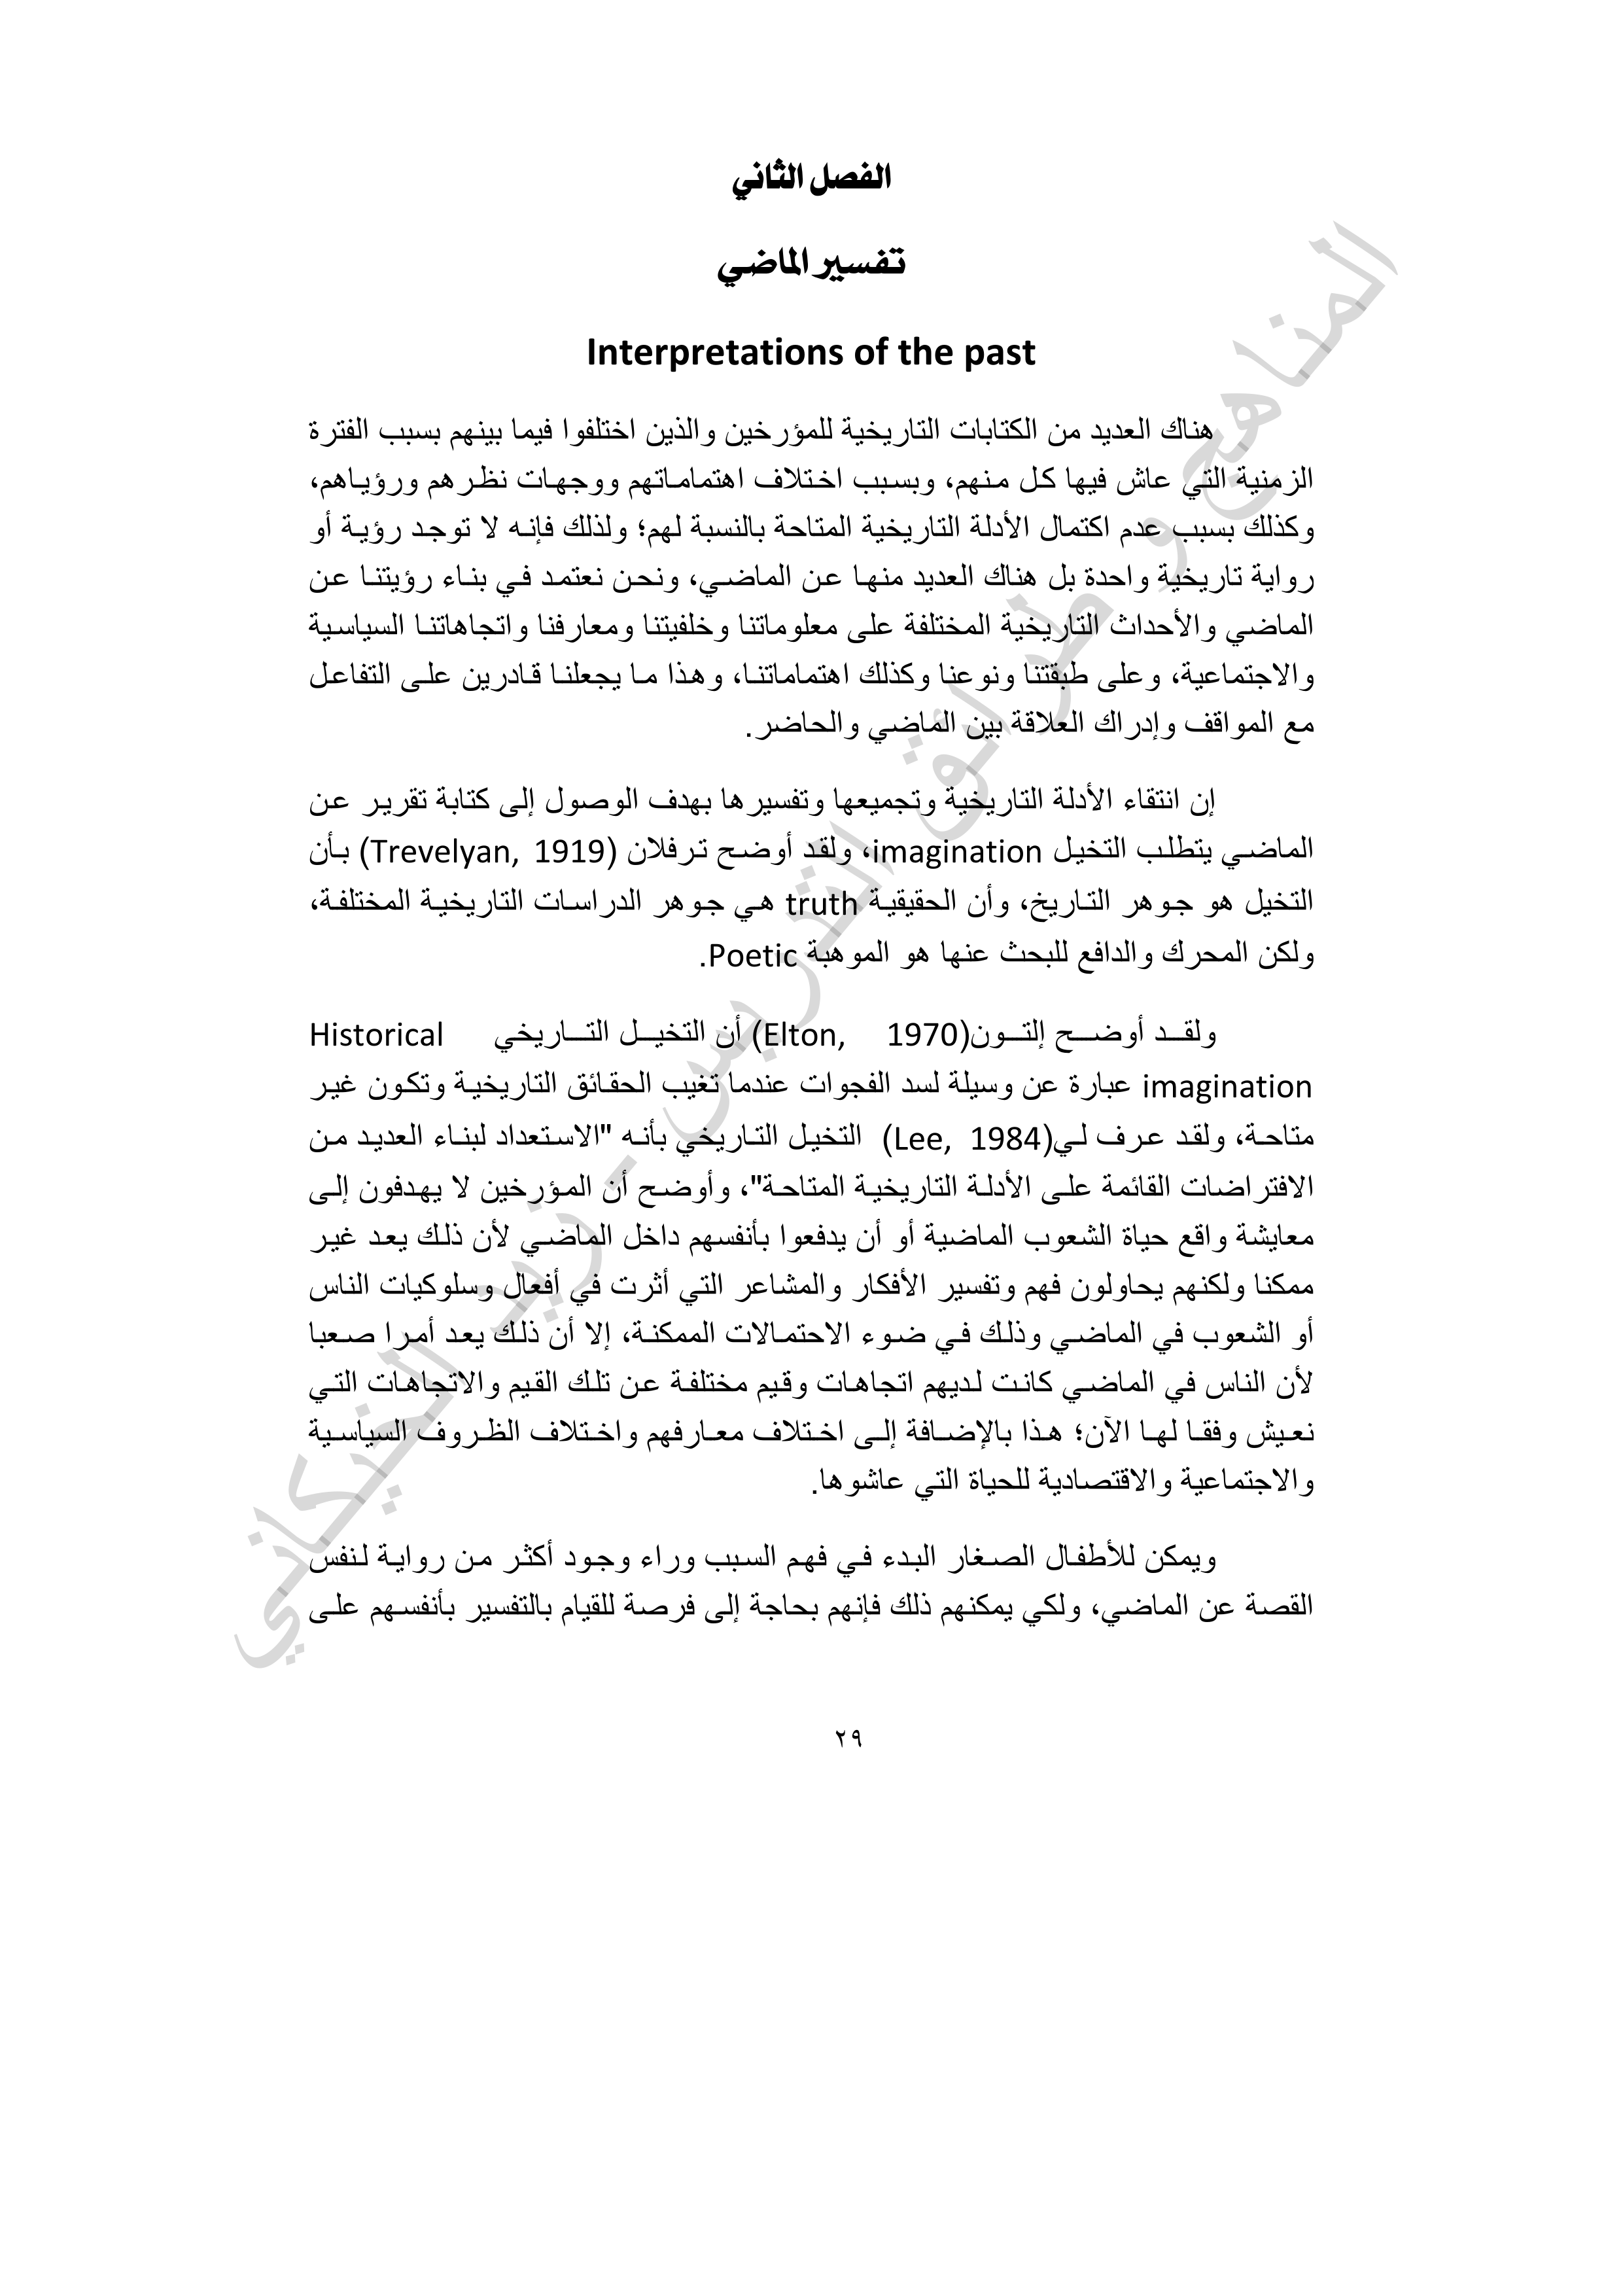 الفصل الثاني
تفسير الماضي
Interpretations of the past
هناك العديد من الكتابات التاريخية للمؤرخين والذين اختلفوا فيما بينهم بسبب الفترة
الزمنية التي عاش فيها كل منهم، وبسبب اختلاف اهتماماتهم ووجهات نظرهم ورؤياهم،
وكذلك بسبب عدم اكتمال الأدلة التاريخية المتاحة بالنسبة لهم؛ ولذلك فإنه لا توجد رؤية أو
رواية تاريخية واحدة بل هناك العديد منها عن الماضي، ونحن نعتمد في بناء رؤيتنا عن
الماضي والأحداث التاريخية المختلفة على معلوماتنا وخلفيتنا ومعارفنا واتجاهاتنا السياسية
والاجتماعية، وعلى طبقتنا ونوعنا وكذلك اهتماماتنا، وهذا ما يجعلنا قادرين على التفاعل
مع المواقف وإدراك العلاقة بين الماضي والحاضر.
إن انتقاء الأدلة التاريخية وتجميعها وتفسيرها بهدف الوصول إلى كتابة تقرير عن
الماضي يتطلب التخيل imagination، ولقد أوضح ترفلان (Trevelyan, 1919) بأن
التخيل هو جوهر التاريخ، وأن الحقيقية truth هي جوهر الدراسات التاريخية المختلفة،
ولكن المحرك والدافع للبحث عنها هو الموهبة Poetic.
ولقد أوضح إلتون(Elton, 1970) أن التخيل التاريخي Historical
imagination عبارة عن وسيلة لسد الفجوات عندما تغيب الحقائق التاريخية وتكون غير
متاحة، ولقد عرف لي(Lee, 1984) التخيل التاريخي بأنه "الاستعداد لبناء العديد من
الافتراضات القائمة على الأدلة التاريخية المتاحة"، وأوضح أن المؤرخين لا يهدفون إلى
معايشة واقع حياة الشعوب الماضية أو أن يدفعوا بأنفسهم داخل الماضي لأن ذلك يعد غير
ممكنا ولكنهم يحاولون فهم وتفسير الأفكار والمشاعر التي أثرت في أفعال وسلوكيات الناس
أو الشعوب في الماضي وذلك في ضوء الاحتمالات الممكنة، إلا أن ذلك يعد أمرا صعبا
لأن الناس في الماضي كانت لديهم اتجاهات وقيم مختلفة عن تلك القيم والاتجاهات التي
نعيش وفقا لها الآن؛ هذا بالإضافة إلى اختلاف معارفهم واختلاف الظروف السياسية
والاجتماعية والاقتصادية للحياة التي عاشوها.
ويمكن للأطفال الصغار البدء في فهم السبب وراء وجود أكثر من رواية لنفس
القصة عن الماضي، ولكي يمكنهم ذلك فإنهم بحاجة إلى فرصة للقيام بالتفسير بأنفسهم على
٢٩
المناهج و طرائق التدريس - زيد الخيكاني